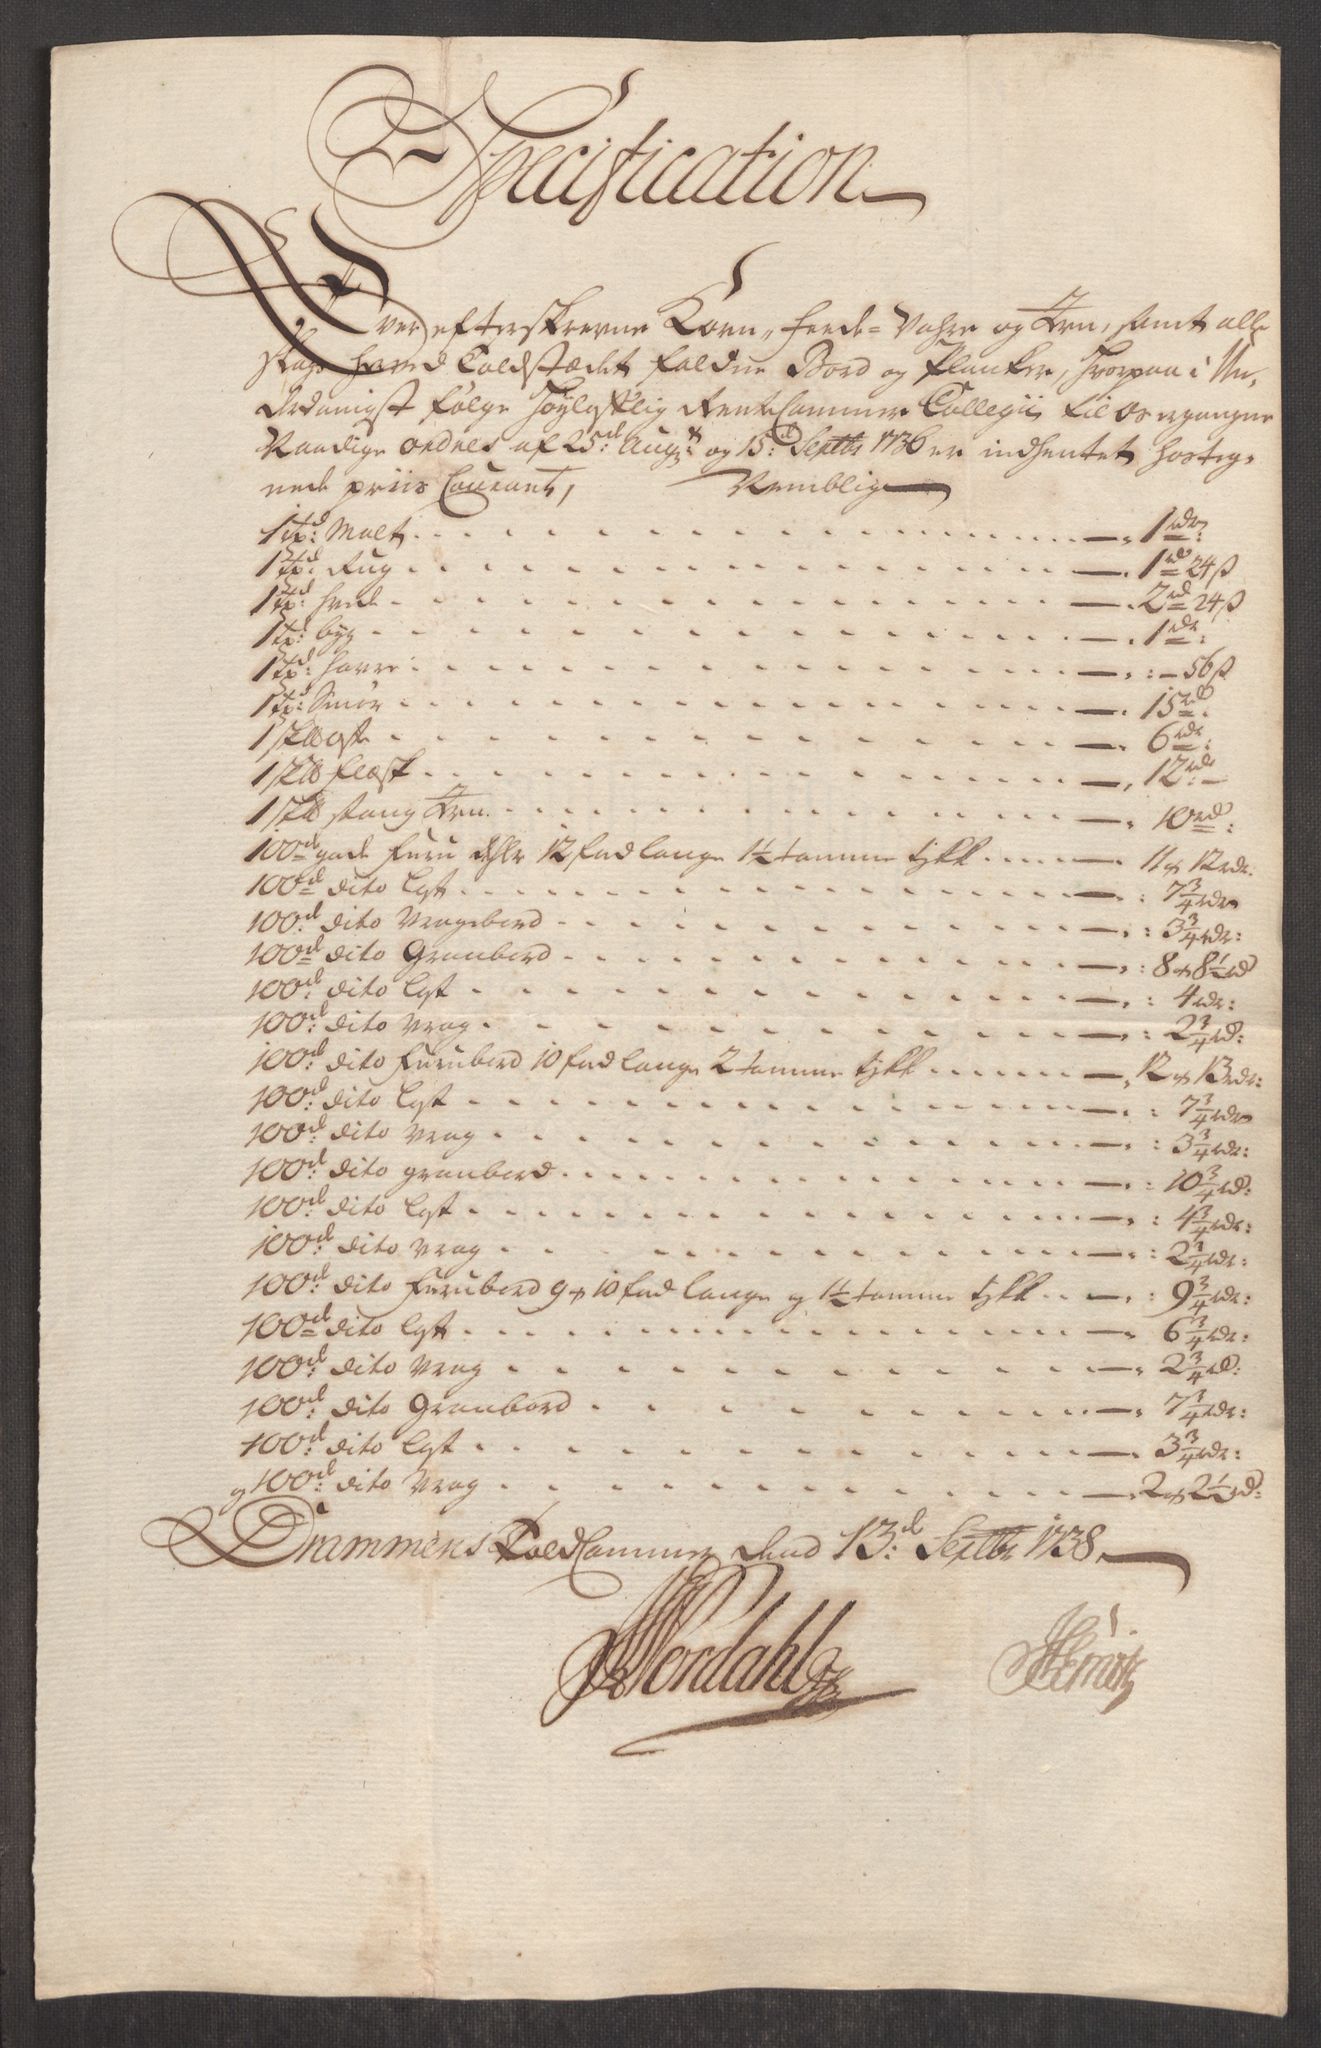 Specification
Over efterskrevne Korn, Feede-Vahre og Jern, samt alle
slags herved Toldstædet faldne Bord og Planker, hvorpaa i Un-
derdanigst følge Høylovlig Rente Cammer Collegii til os ergangne
Naadige ordres af 25de Augti og 15de Septbr 1736 er indhentet hosteg-
nede priis Courant, Nemblig
1 td: Malt - 1 rdr:
1 td: Rug - 1 rd 24 ß
1 td: Hvede - 2 rd 24 ß
1 td: byg - 1 rdr:
1 td: Havre - : - 56 ß
1 td: Smør - 15 rd:
1 s℔ ost - 6 rdr:
1 s℔ Flæsk - 12 rd:
1 s℔ stang Jern - 10 rd:
100de gode Furu dehler 12 fod lange 1½ tomme tykk - 11 à 12 rdr.
100de dito lgt - 7¾ rdr
100de dito Vragebord - 3¾ rdr:
100de dito Granbord - 8 à 8½ rd
100de dito lgt - 4 rdr:
100de dito Vrag - 2¾ rd:
100de dito Furubord 10 fod lange 2 tomme tykk - 12 à 13 rdr:
100de dito lgt - 7¾ rdr
100de dito Vrag - 3¾ rdr:
100de dito granbord - 10¾ rd:
100de dito lgt - 4¾ rdr:
100de dito Vrag - 2¾ rdr:
100de dito Furubord 9 à 10 fod lange og 1½ tomme tykk - 9¾ rdr:
100de dito lgt - 6¾ rdr:
100de dito Vrag - 2¾ rd:
100de dito Granbord - 7¾ rdr:
100de dito lgt - 3¾ rdr:
og 100de dito Vrag - 2 à 2½ rd:
Drammens Told Cammer dend 13de Septbr 1738
Werdahl